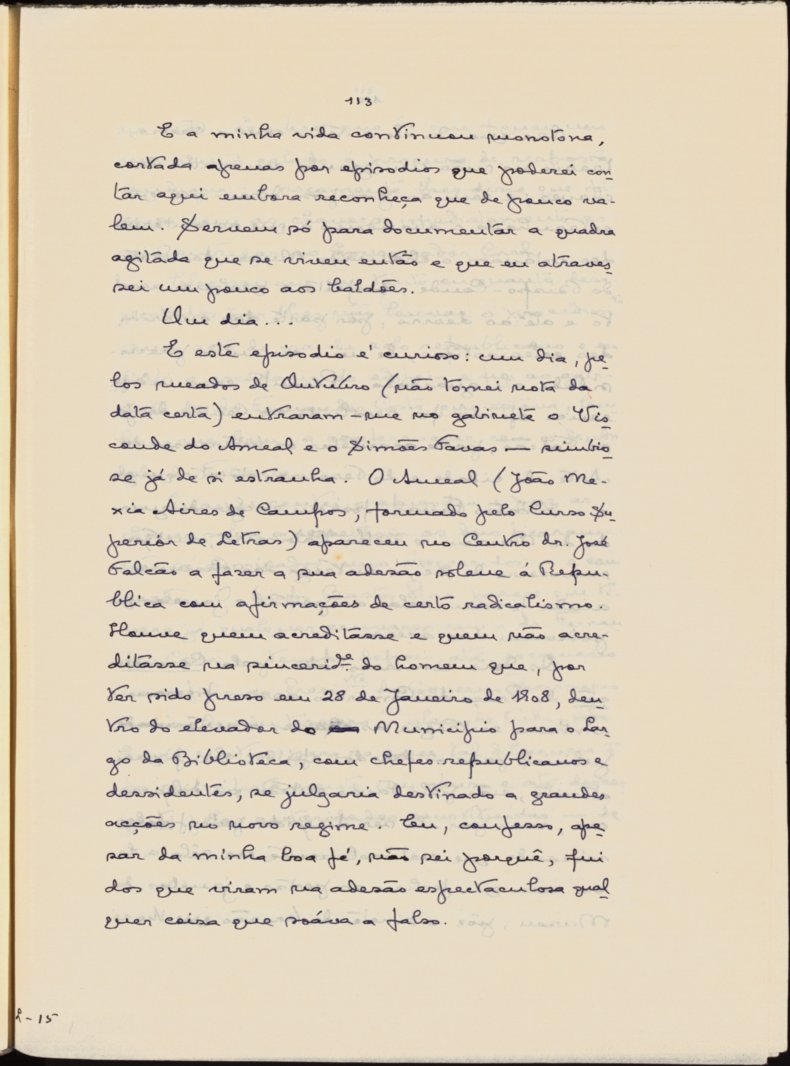 113
E a minha vida continuou monotona,
cortada apenas por episodios que poderei con-
tar aqui embora reconheça que de pouco va-
lem. Servem só para documentar a quadra
agitada que se viveu então e que eu atraves-
sei um pouco aos baldões.
Um dia...
E este episodio é curioso: um dia, pe-
los meados de Outubro (não tomei nota da
data certa) entraram-me no gabinete o Vis-
conde do Ameal e o Simões Favas — simbio-
se já de si estranha. O Ameal (João Me-
xia Aires de Campos, formado pelo Curso Su-
perior de Letras) apareceu no Centro dr. José
Falcão a fazer a sua adesão solene á Repu-
blica com afirmações de certo radicalismo.
Houve quem acreditasse e quem não acre-
ditasse na sincerid.de do homem que, por
ter sido preso em 28 de Janeiro de 1908, den-
tro do elevador do Municipio para o Lar-
go da Biblioteca, com chefes republicanos e
dessidentes, se julgaria destinado a grandes
acções no novo regime. Eu, confesso, ape-
sar da minha boa fé, não sei porquê, fui
dos que viram na adesão espectaculosa qual-
quer coisa que soáva a falso.
2-15